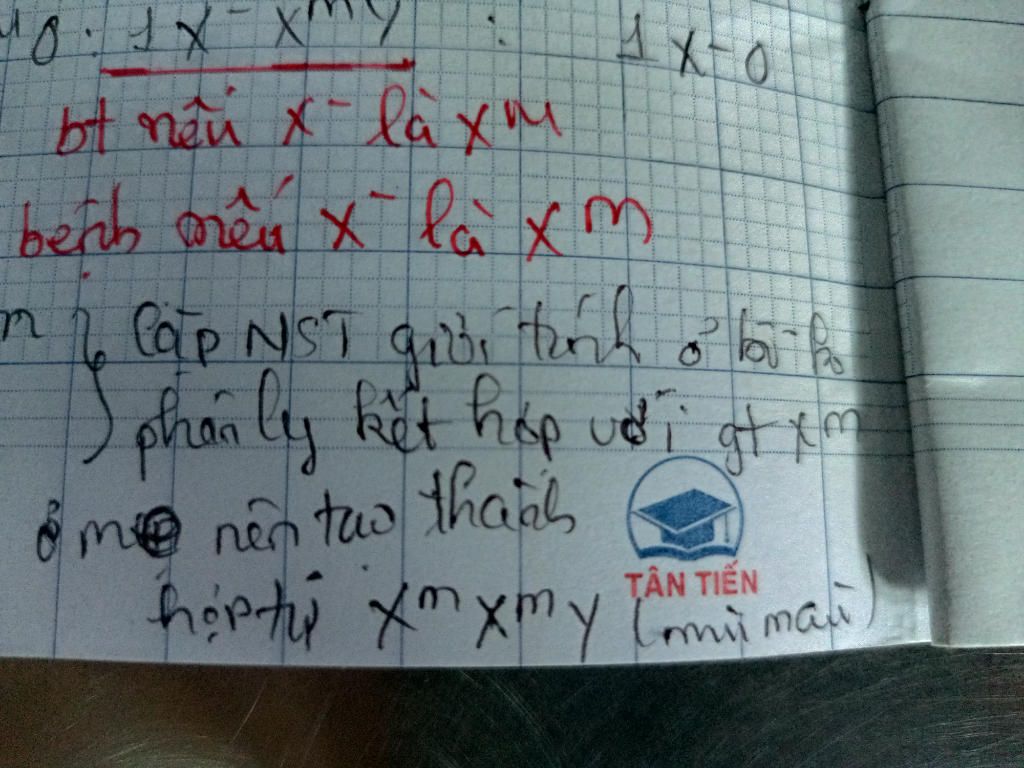 0 : 1 X⁻ XᵐY : 1 X⁻ 0
bt nếu X⁻ là Xᴹ
bệnh nếu X⁻ là Xᵐ
Cặp NST giới tính ở bố ko
phân ly kết hợp với gt Xᵐ
ở mẹ nên tạo thành
TÂN TIẾN
hợp tử XᵐXᵐY (mù màu)